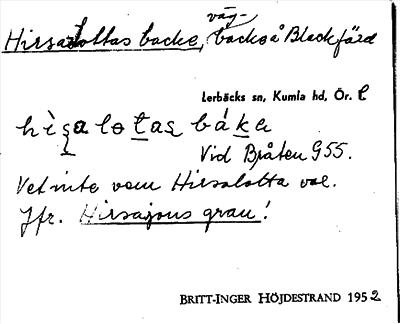 väg-
Hirsalottas backe, backe å Blackfärd
Lerbäcks sn, Kumla hd, Ör. l
hìsalotas báke
Vid Bråten 955.
Vet inte vem Hirsalotta var.
Jfr. Hirsajons grav!
BRITT-INGER HÖJDESTRAND 1952